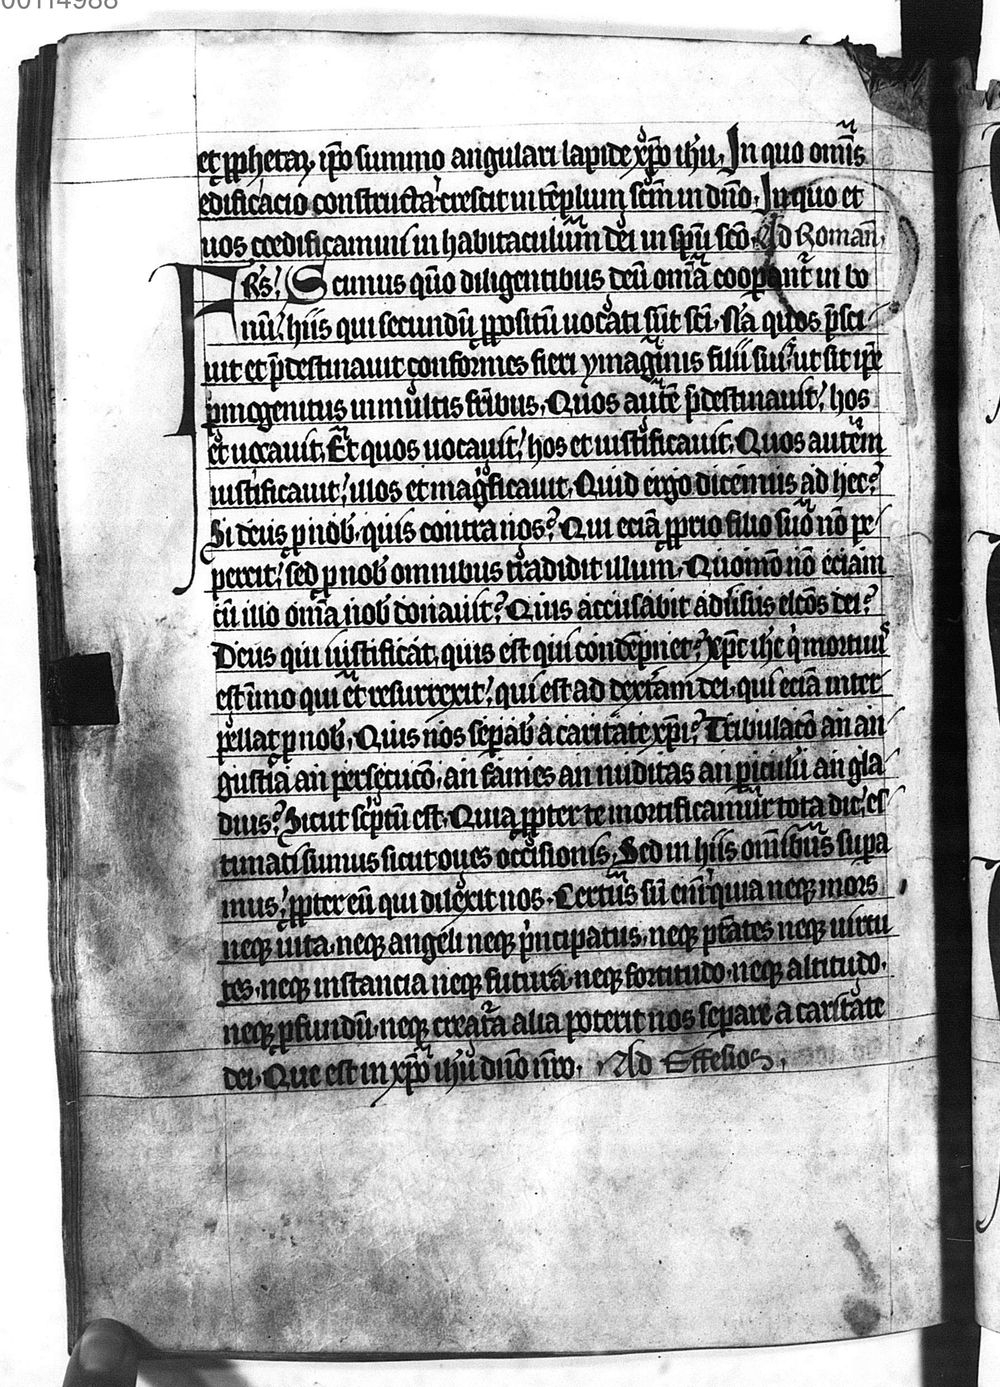 00114988
et ꝓphetaꝝ, ip̄o summo angulari lapide xp̄o ih̄u. In quo om̄is
edificacio constructa crescit in tēplum sc̄m in dn̄o. In quo et
uos coedificamini in habitaculum dei in sp̄u sc̄o. Ad Roman̄.
FRs̄. Scimus qūo diligentibus deū om̄a cooꝑant̄ in bo
nū. hiis qui secundū ꝓpositū uocati sūt sc̄i. Nā quos p̄sci
uit et p̄destinauit conformes fieri ymaginis filii sui ut sit ip̄e
pͥmogenitus in multis fr̄ibus. Quos autē p̄destinauit, hos
et uocauit. Et quos uocauit, hos et iustificauit. Quos autem
iustificauit, illos et magͥficauit. Quid ergo dicemus ad hec?
Si deus ꝓ nob̄, quis contra nos? Qui eciā ꝓprio filio suo nō pe
percit, sed ꝓ nob̄ omnibus tradidit illum. Quomō nō eciam
cū illo om̄a nob̄ donauit? Quis accusabit aduersus elc̄os dei?
Deus qui iustificat, quis est qui condempnet? xp̄c ih̄c qͥ mortuus
est īmo qui et resurrexit, qui est ad dexteram dei, qui eciā inter
pellat ꝓ nob̄. Quis nos seꝑab̄ a caritate xp̄i? Tribulacō an an
gustia an persecucō, an fames an nuditas an ꝑiculū an gla
dius? Sicut sc̄ptū est. Quia ꝓpter te mortificamur tota die, es
timati sumus sicut oues occisionis. Sed in hiis om̄ibus suꝑa
mus, ꝓpter eū qui dilexit nos. Certus sū enī quia neqꝫ mors
neqꝫ uita, neqꝫ angeli neqꝫ pͥncipatus, neqꝫ pt̄ates neqꝫ uirtu
tes, neqꝫ instancia neqꝫ futura, neqꝫ fortitudo, neqꝫ altitudo,
neqꝫ ꝓfundū, neqꝫ creat̄a alia poterit nos separe a caritate
dei. Que est in xp̄o ih̄u dn̄o nr̄o. Ad Effesios.